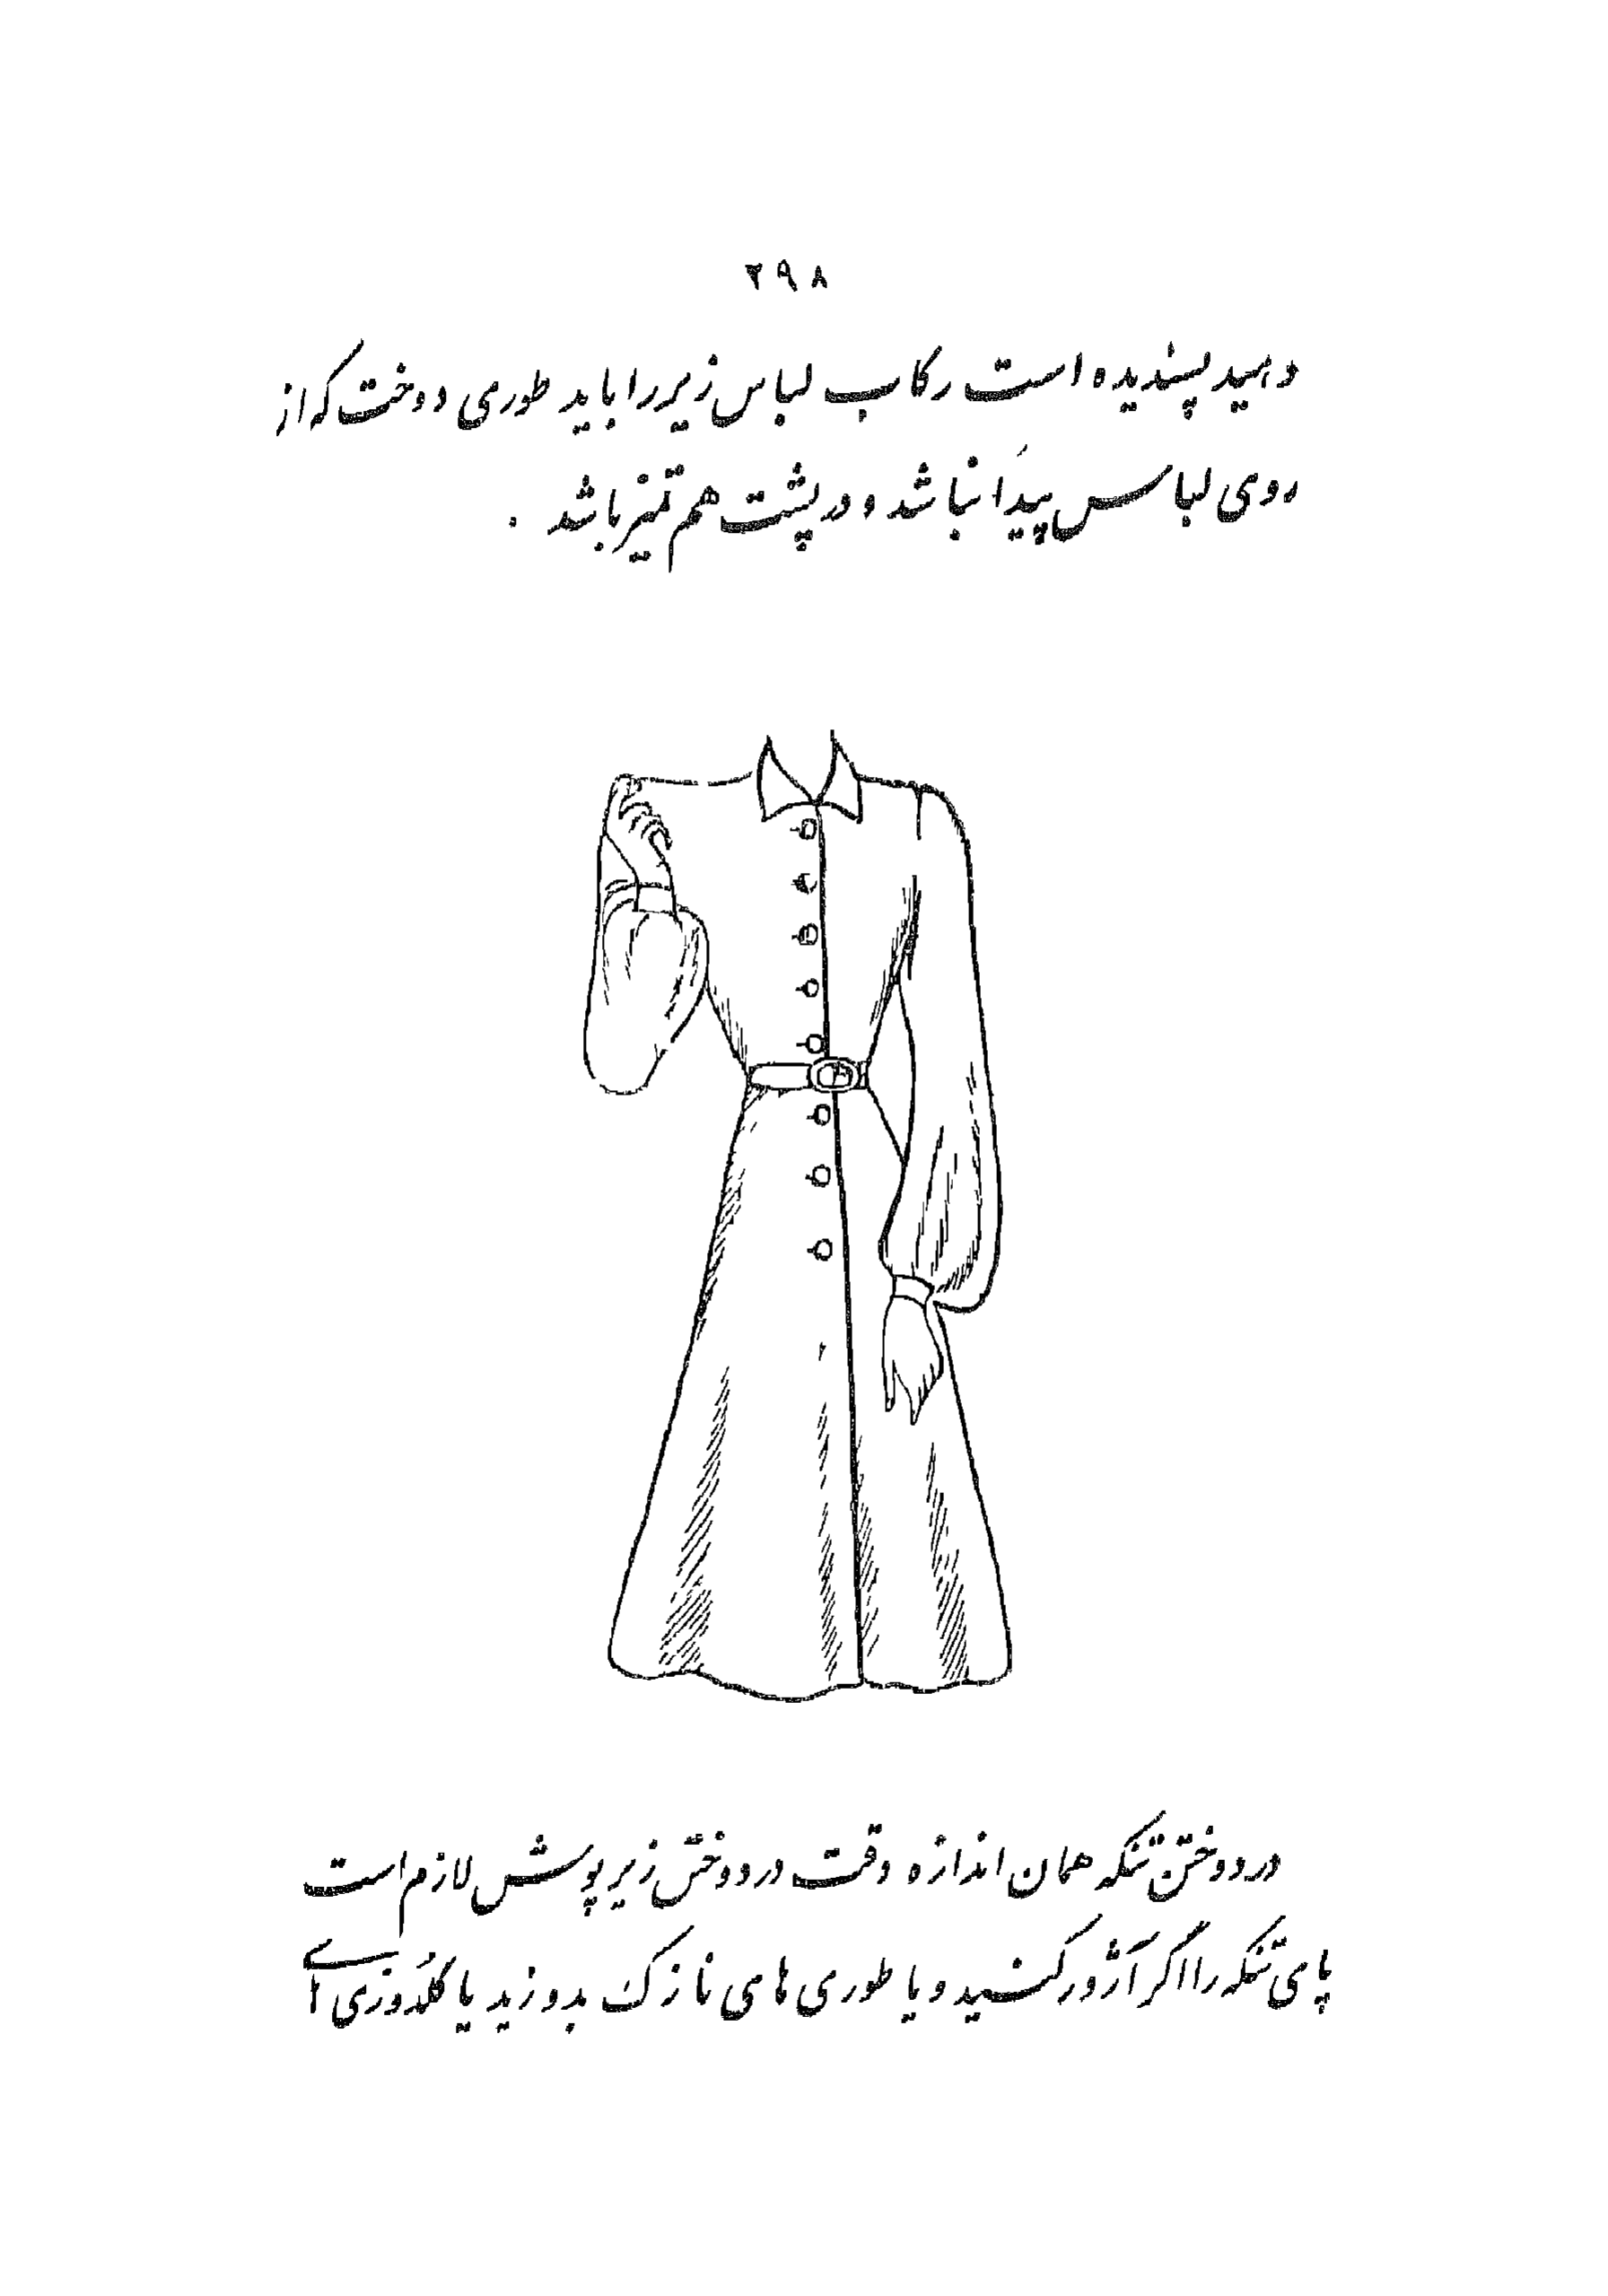 ۲۹۸
دهید پسندیده است رکاب لباس زیر را باید طوری دوخت که از
روی لباس پیدا نباشد و در پشت هم تمیز باشد .
در دوختن تنکه همان اندازه وقت در دوختن زیر پوش لازم است
پای تنکه را اگر آژور کنید و یا طوری های نازک بدوزید یا گلدوزی ای